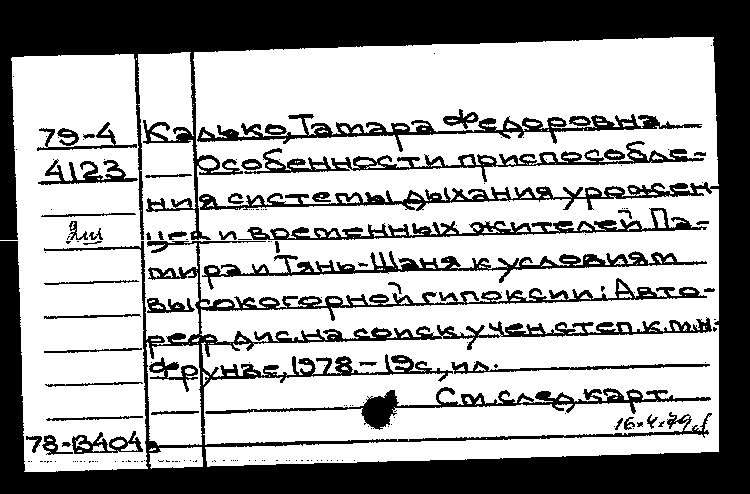 79-4 Калько, Тамара Федоровна.
4123 Особенности приспособле-
ния системы дыхания урожен-
2ш цев и временных жителей Па-
мира и Тянь-Шаня к условиям
высокогорной гипоксии: Авто-
реф. дис. на соиск. учен. степ. к.м.н.
Фрунзе, 1978. - 19с., ил.
См. след. карт.
16.4.79
78-13404